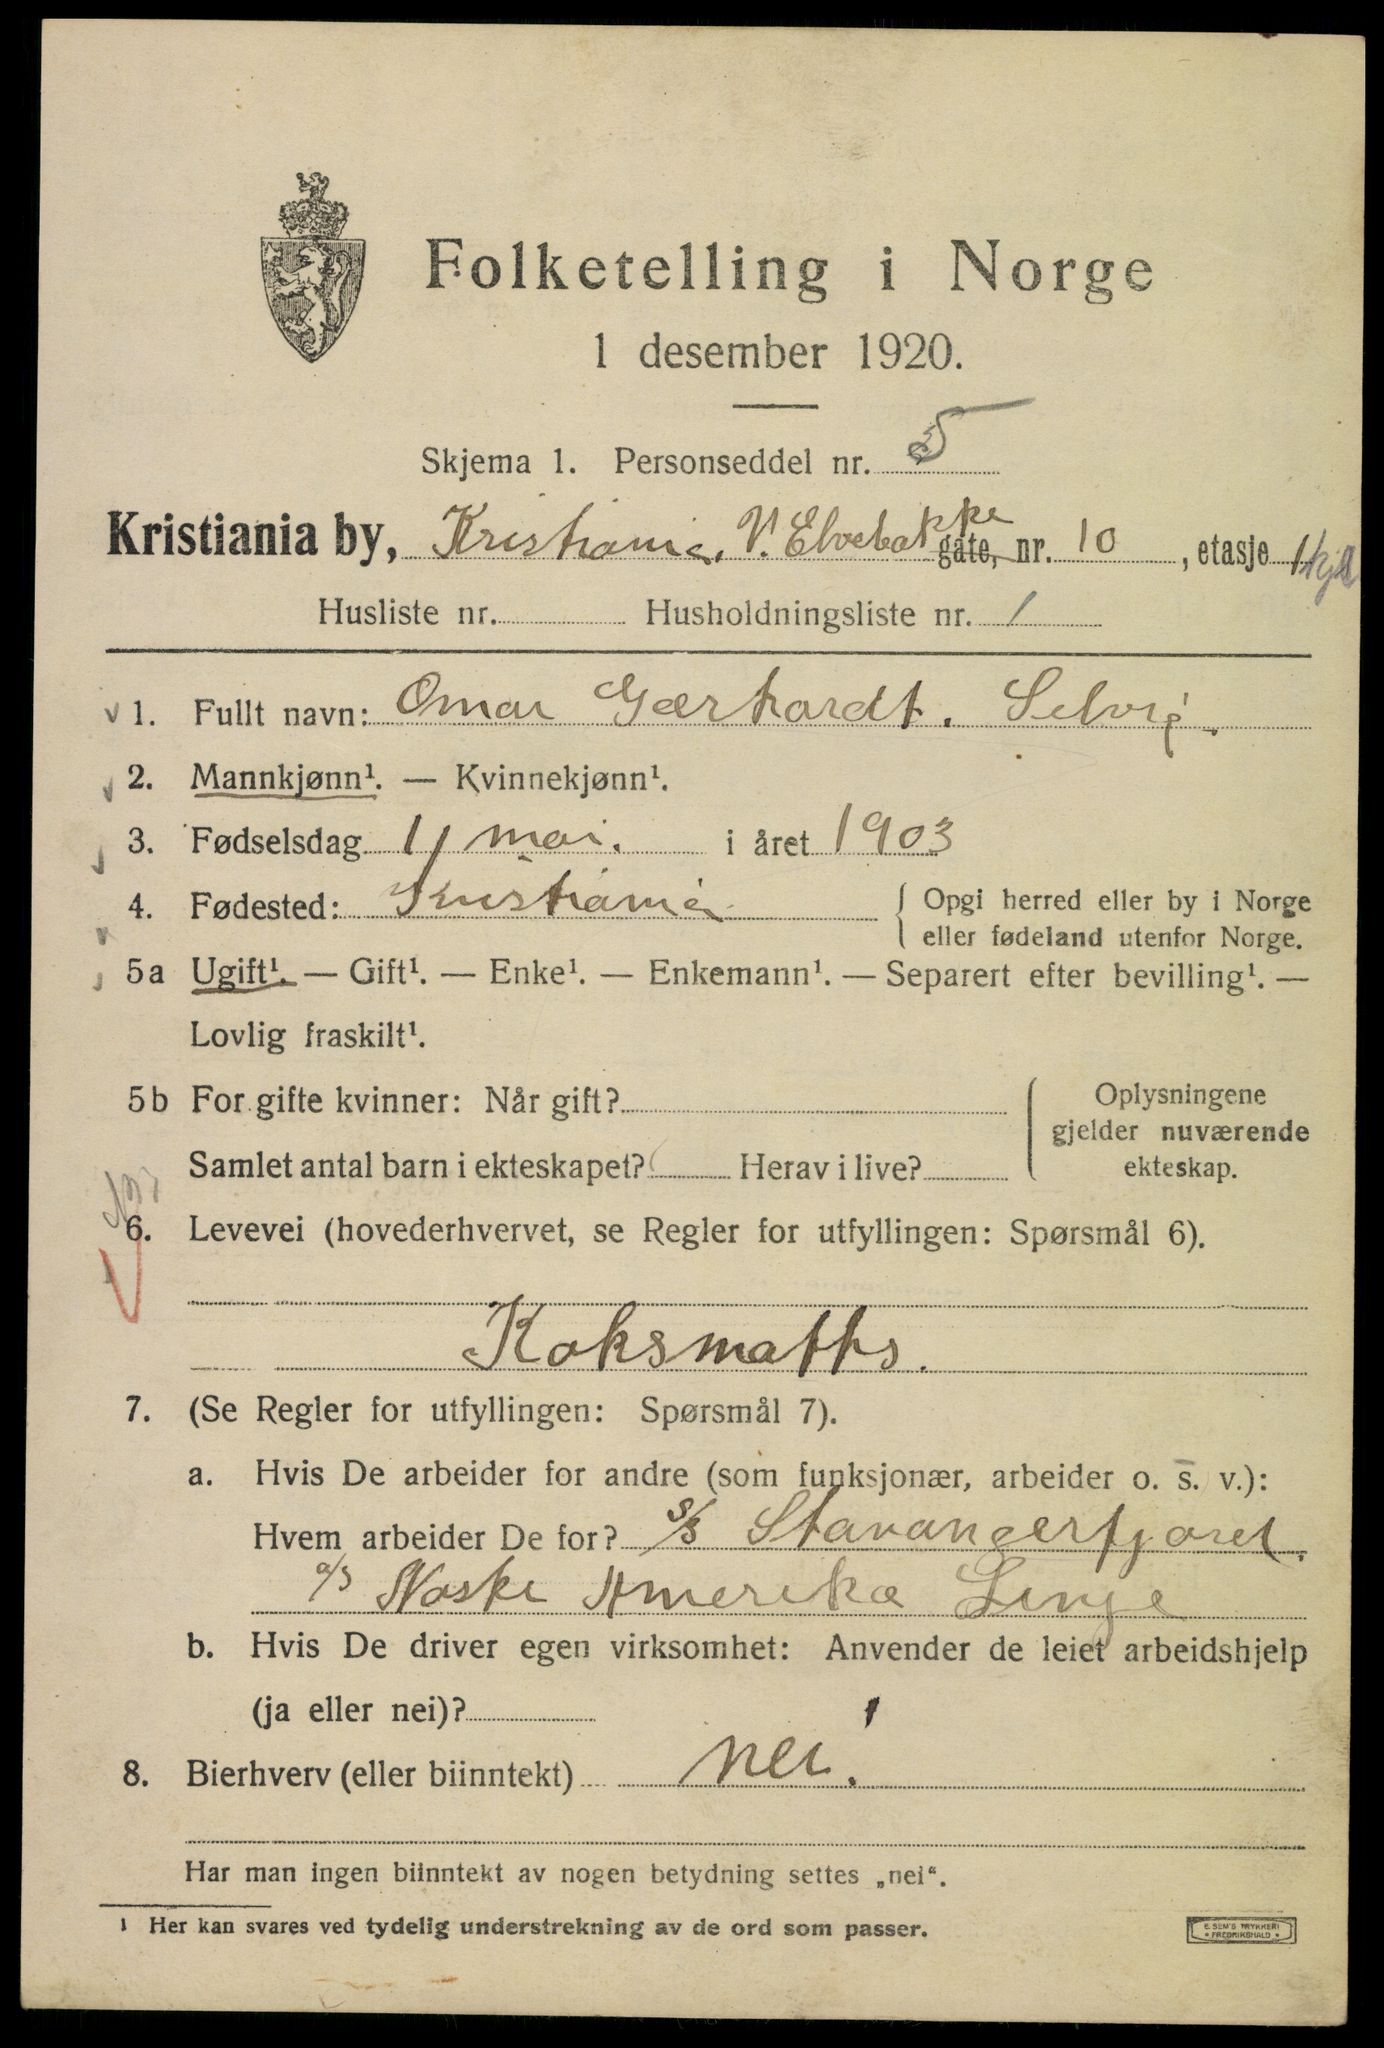 Folketelling i Norge
1 desember 1920.
Skjema 1. Personseddel nr. 5
Kristiania by, Kristiania. V. Elvebakke gate, nr. 10, etasje 1
Husliste nr. Husholdningsliste nr. 1
1. Fullt navn: Omar Gærhardt. Selvig.
2. Mannkjønn¹. — Kvinnekjønn¹.
3. Fødselsdag 11 mai. i året 1903
4. Fødested: Kristiania { Opgi herred eller by i Norge
eller fødeland utenfor Norge.
5a Ugift¹. — Gift¹. — Enke¹. — Enkemann¹. — Separert efter bevilling¹. —
Lovlig fraskilt¹.
5b For gifte kvinner: Når gift? { Oplysningene
gjelder nuværende
Samlet antal barn i ekteskapet? Herav i live? ekteskap.
6. Levevei (hovederhvervet, se Regler for utfyllingen: Spørsmål 6).
Koksmatts.
7. (Se Regler for utfyllingen: Spørsmål 7).
a. Hvis De arbeider for andre (som funksjonær, arbeider o. s. v.):
Hvem arbeider De for? S/S Stavangerfjored.
a/s Noske Amerika Linje
b. Hvis De driver egen virksomhet: Anvender de leiet arbeidshjelp
(ja eller nei)?
8. Bierhverv (eller biinntekt) nei!
Har man ingen biinntekt av nogen betydning settes „nei“.
1 Her kan svares ved tydelig understrekning av de ord som passer.
E. SEM'S TRYKKERI
FREDRIKSHALD